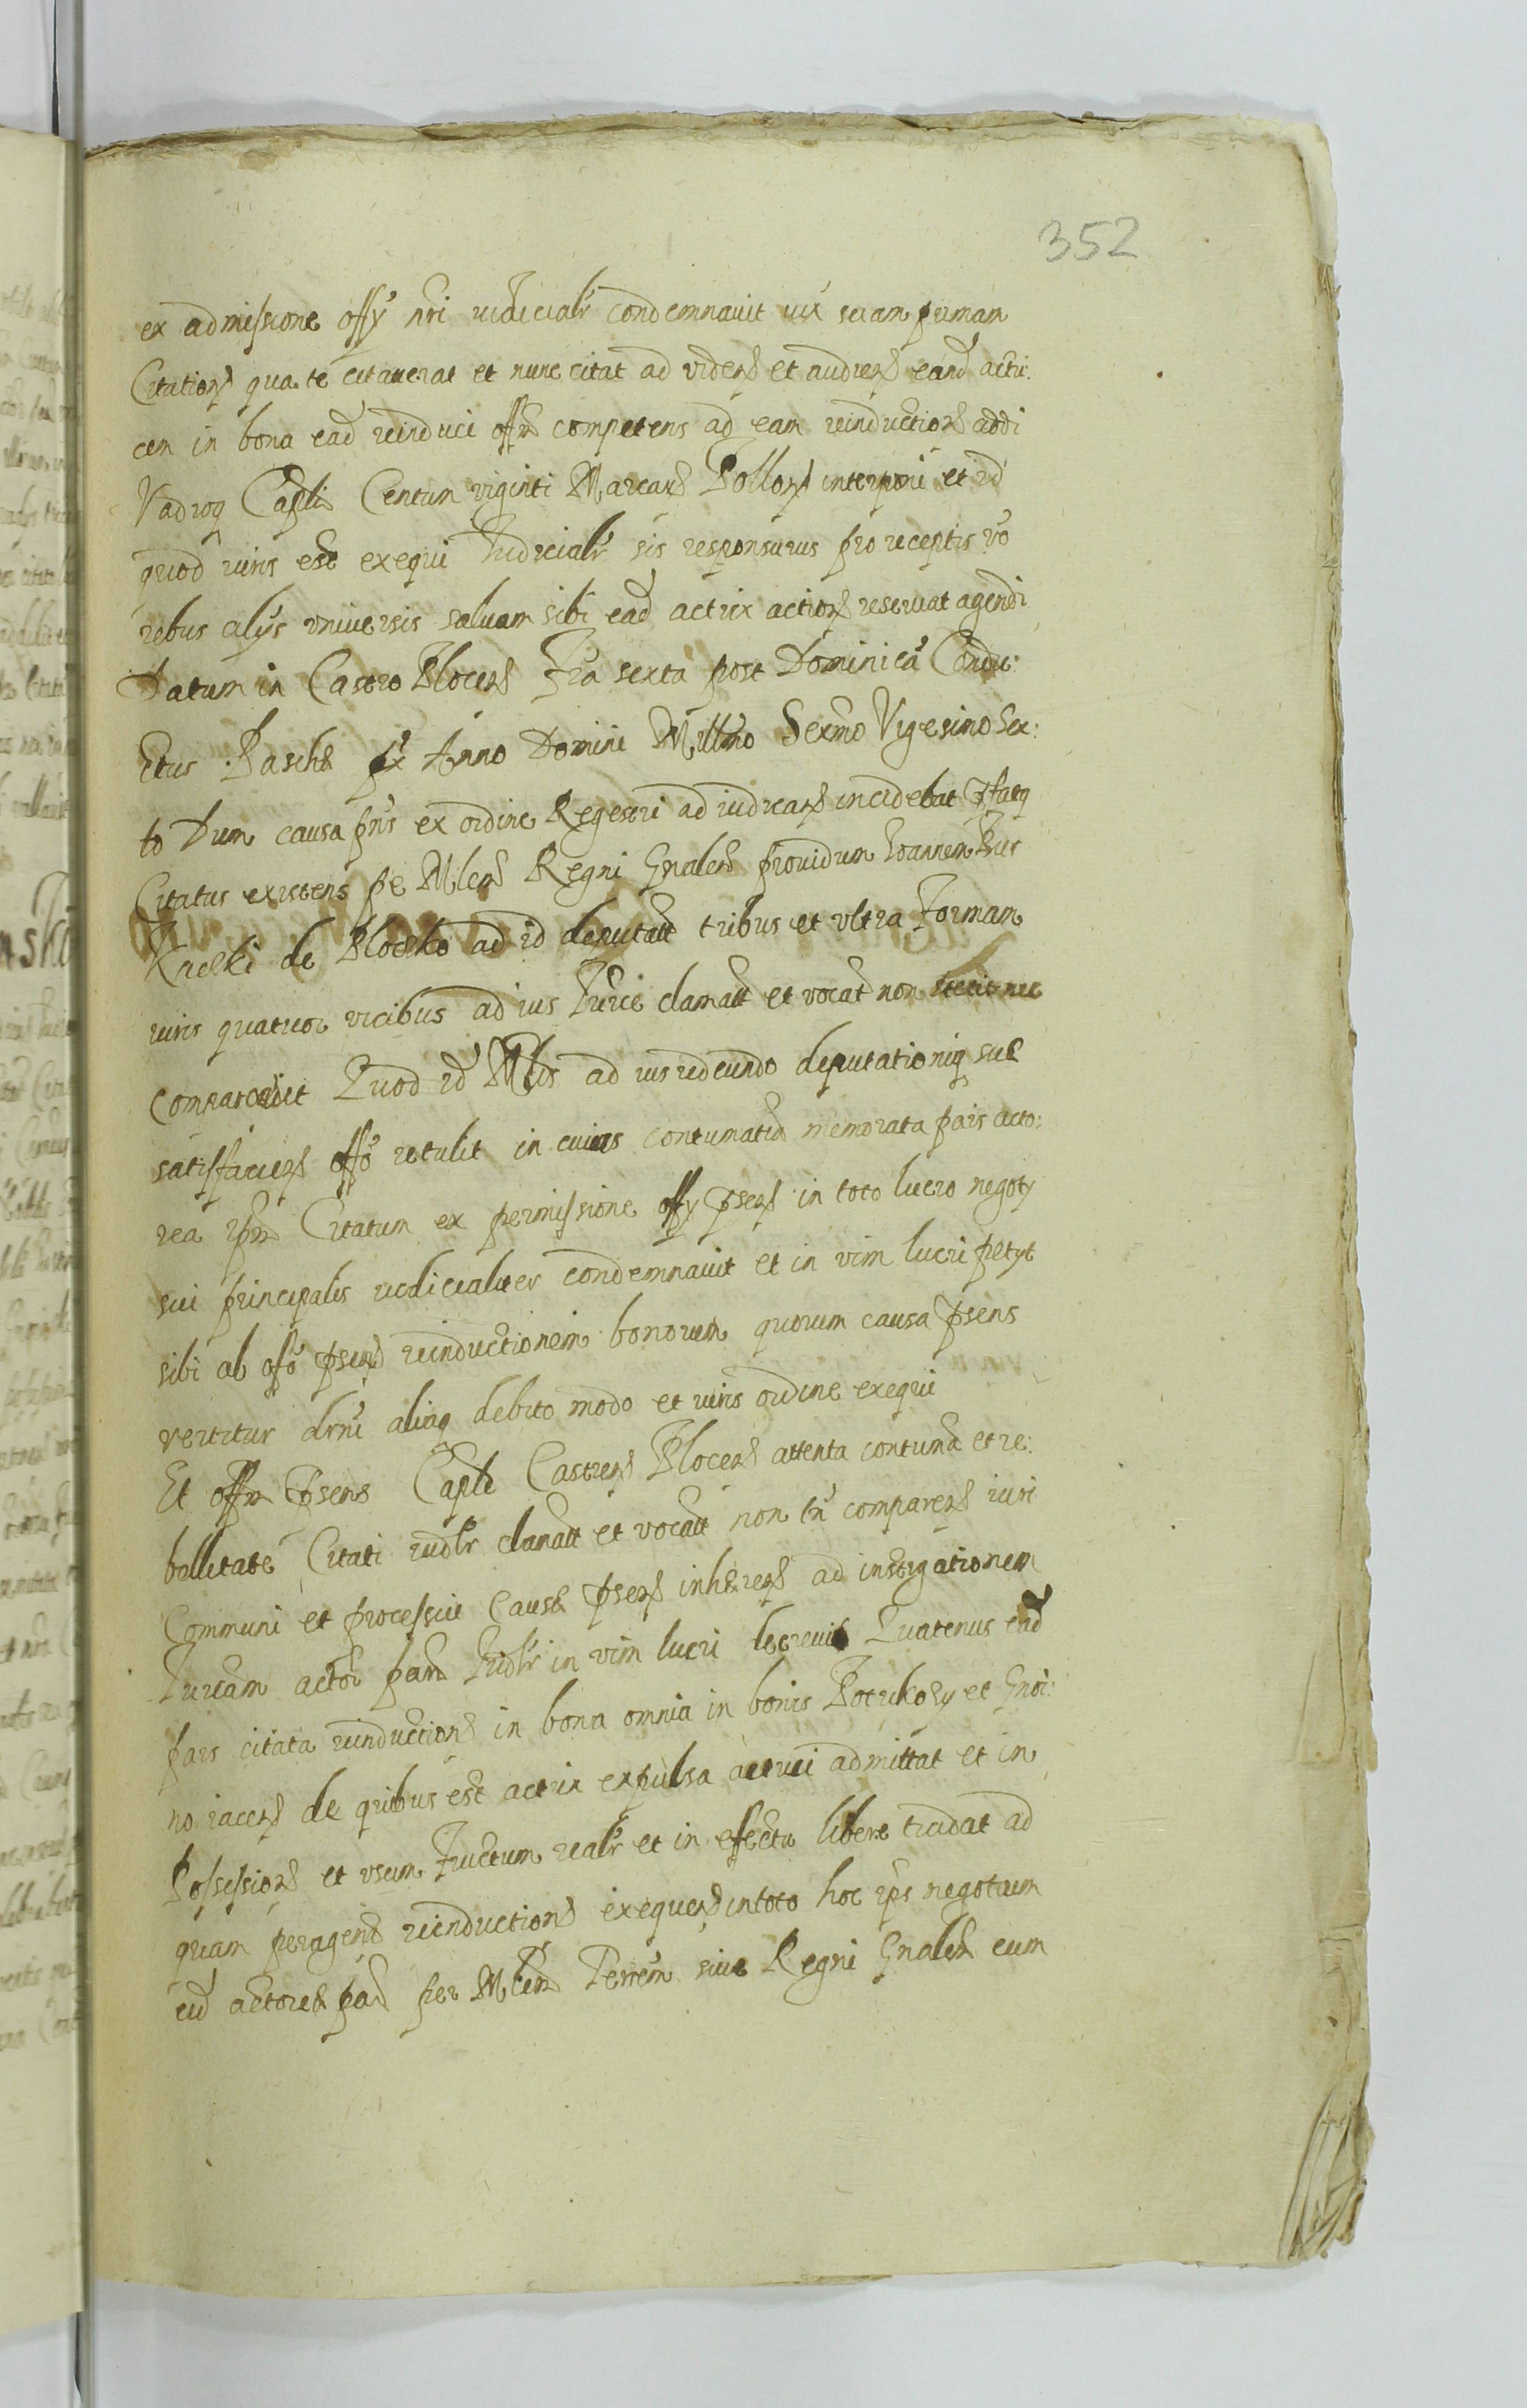 352
ex admissione offÿ nri iudicialr condemnauit iux suam primam
Citationẽ qua te citauerat et nunc citat ad videnđ et audienđ eand actri:
cem in bona ead reinduci offm competens ad eam reinductionẽ addi
Vadioq Capli Centum viginti Marcarũ Pollonẽ interponi et id
quod iuris est exequi Iudicialr sis responsurus pro receptis vo
rebus alÿs vniuersis saluam sibi ead actrix actionẽ reseruat agendi
Datum in Castro Plocenẽ Fra sexta post Dominicã Condu:
ctus Paschæ px Anno Domini Millmo Sexmo Vigesimo Sex:
to Dum causa pns ex ordine Regestri ad iudicanđ incidebat pfatq
Citatus existens pe Mlem Regni Gnalem prouidum Ioannem
de Plocko ad id deputatt tribus et vltra Formam
iuris quatuor vicibus ad ius Furie clamatt et vocatt non stetit nec
comparuit Quod id Mlis ad ius redeundo deputationiq suæ
satisfacienđ offo retulit in cuius contumatiã memorata pars acto:
rea ipm Citatum ex permissione offÿ psenẽ in toto lucro negotÿ
sui principalis iudicialiter condemnauit et in vim lucri petÿt
sibi ab offo psenẽ reinductionem bonorum quorum causa psens
vertitur drni aliaq debito modo et iuris ordine exequi
Et offm psens Capli Castrenẽ Plocenẽ attenta contuma et re:
bellitate Citati iudlr clamatt et vocatt non tñ comparenẽ iuri
Communi et processui Causæ psenẽ inherenđ ad instigationem
actor partẽ Iudlr in vim lucri decreuit Quatenus ead
pars citata reinductionẽ in bona omnia in bonis et Gnoi:
no iacenẽ de quibus est actrix expulsa actrici admittat et in
Possessionẽ et vsum Fructum realr et in effectu libere tradat ad
quam peragenđ reinductionẽ exequenđ in toto hoc ips negotium
eid actoreæ parti per Mlem Terrẽm siue Regni Gnalem cum